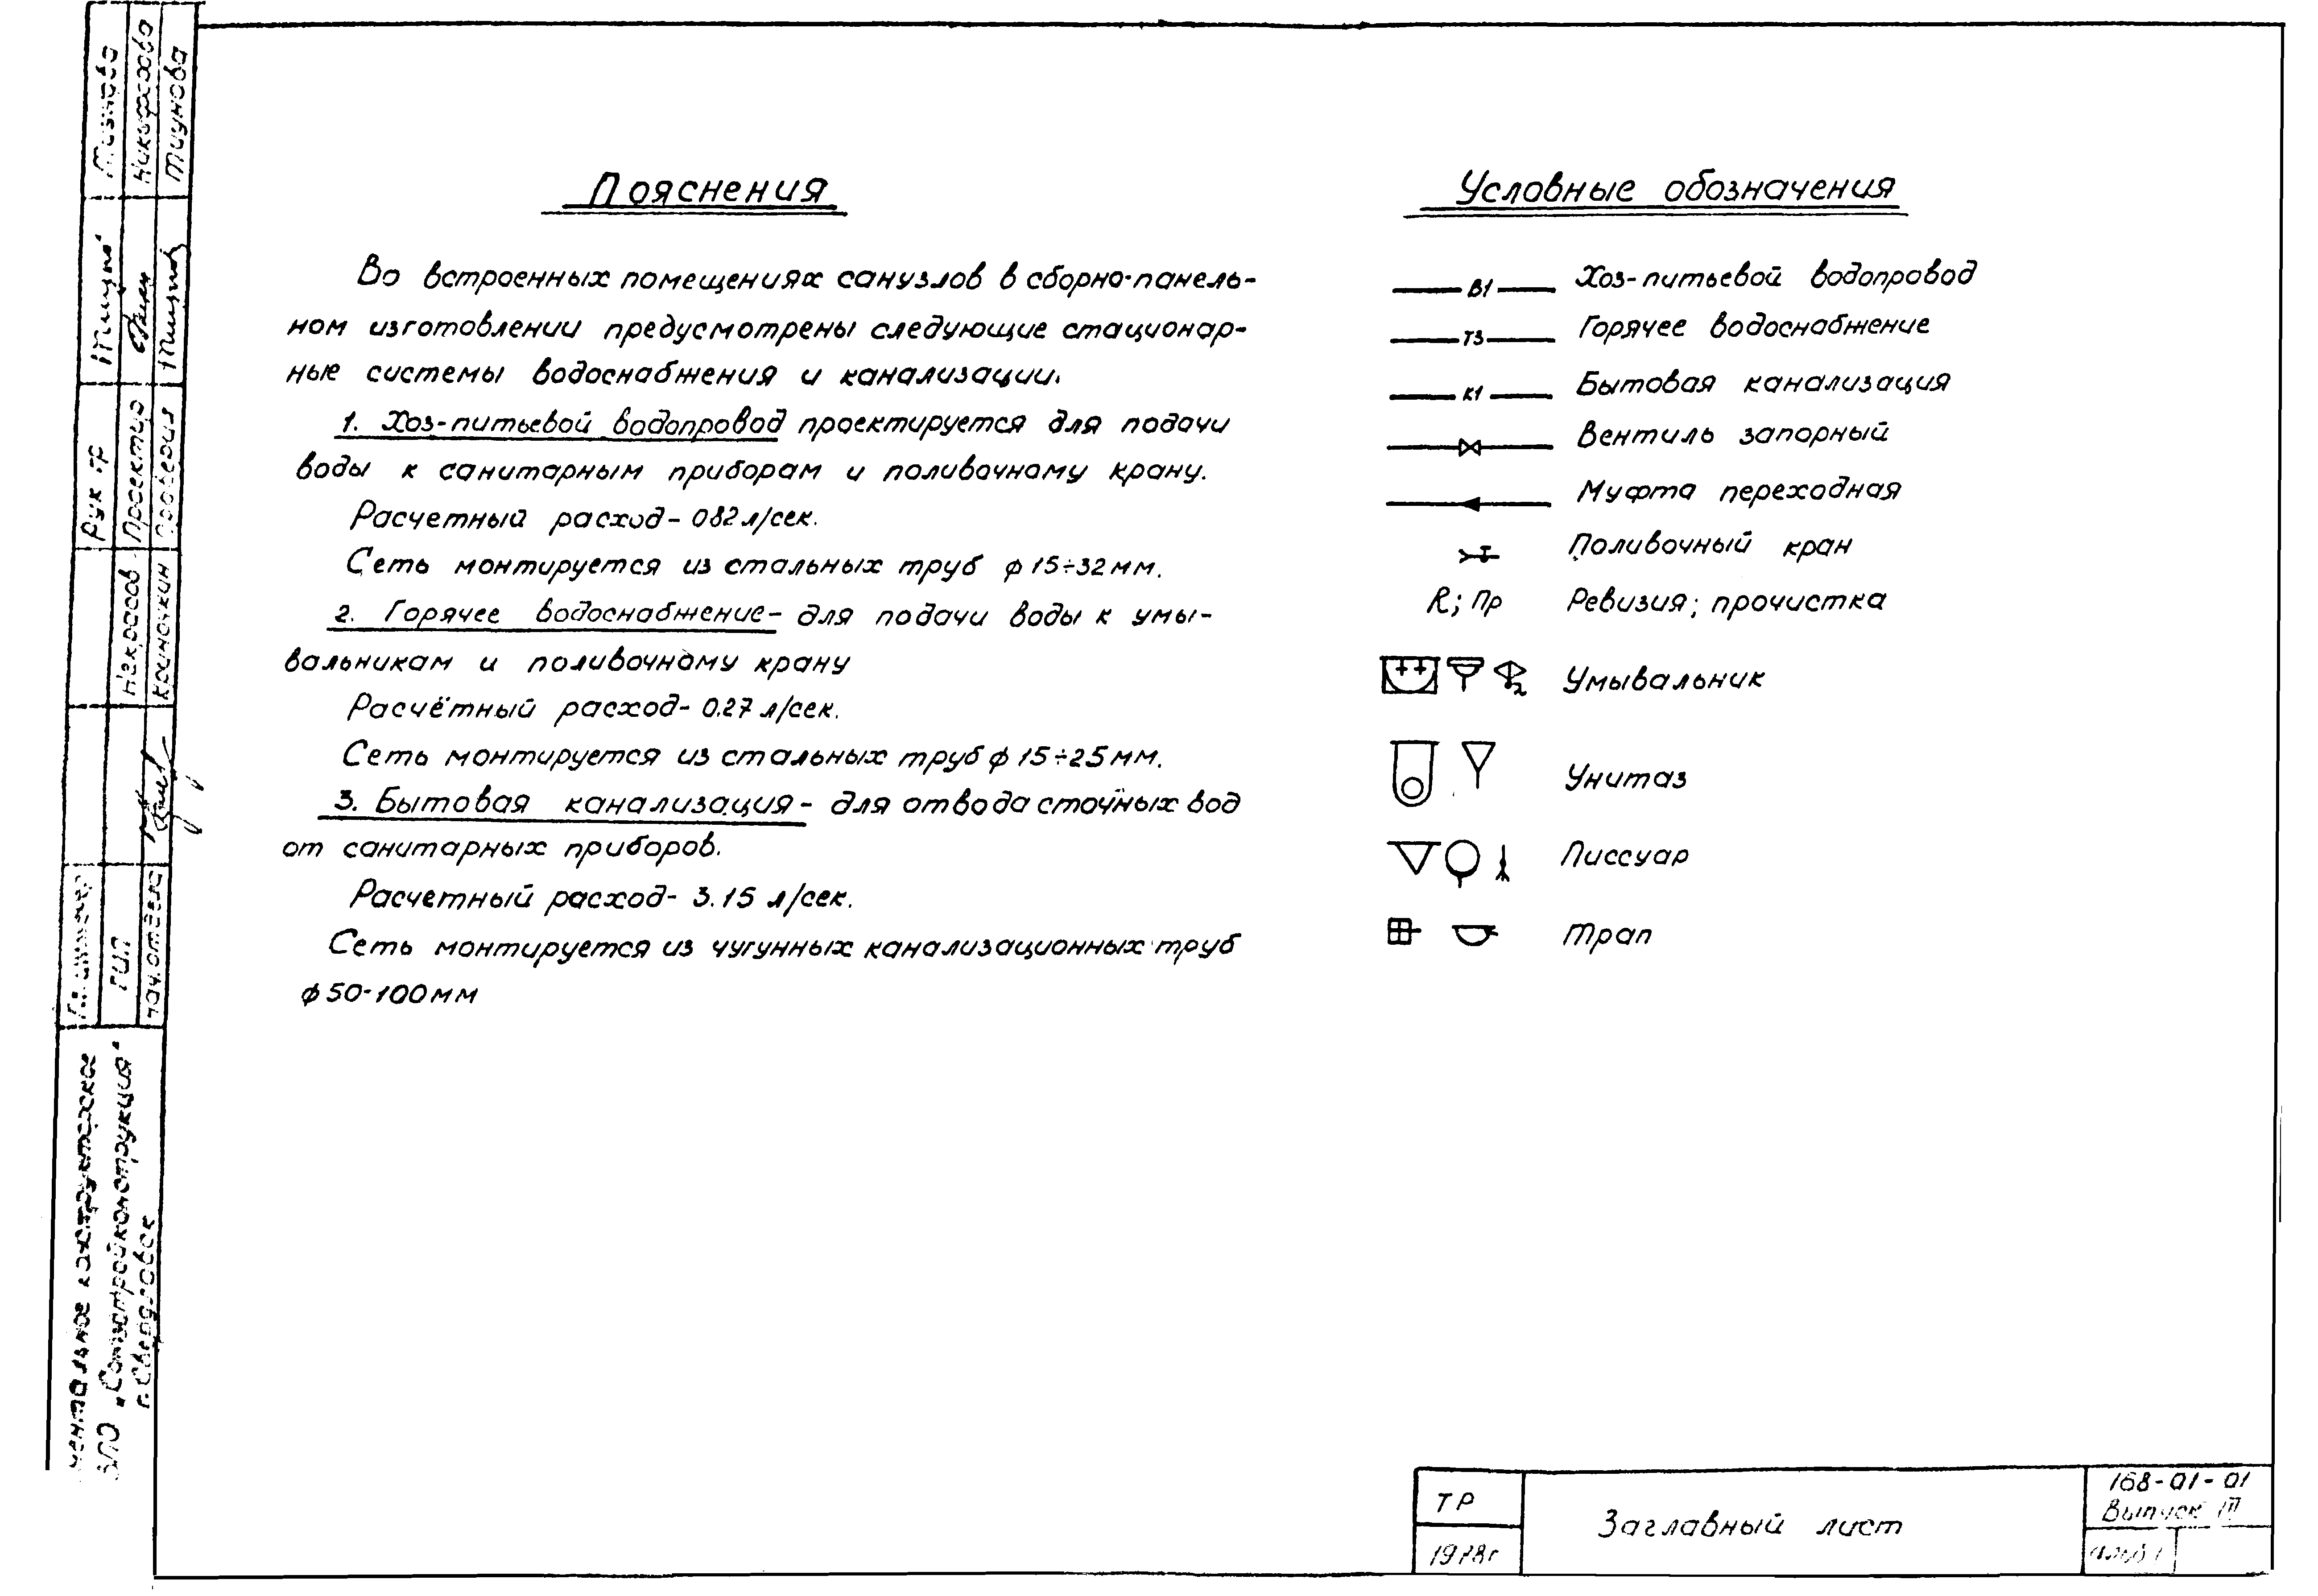 Пояснения
Во встроенных помещениях санузлов в сборно-панель-
ном изготовлении предусмотрены следующие стационар-
ные системы водоснабжения и канализации.
1. Хоз-питьевой водопровод проектируется для подачи
воды к санитарным приборам и поливочному крану.
Расчетный расход - 082 л/сек.
Сеть монтируется из стальных труб ф 15÷32 мм.
2. Горячее водоснабжение - для подачи воды к умы-
вальникам и поливочному крану
Расчётный расход - 0.27 л/сек.
Сеть монтируется из стальных труб ф 15÷25 мм.
3. Бытовая канализация - для отвода сточных вод
от санитарных приборов.
Расчетный расход - 3.15 л/сек.
Сеть монтируется из чугунных канализационных труб
ф 50-100 мм
Условные обозначения
В1 Хоз-питьевой водопровод
Т3 Горячее водоснабжение
К1 Бытовая канализация
Вентиль запорный
Муфта переходная
Поливочный кран
R; Пр Ревизия; прочистка
Умывальник
Унитаз
Писсуар
Трап
ТР
1978г
Заглавный лист
168-01-01
Выпуск III
Никифорова
Тиунова
Рук гр
Проектир
Проверил
Некрасов
ГИП
Нач. отдела
ЭПО „Союзстройконструкция"
г. Свердловск